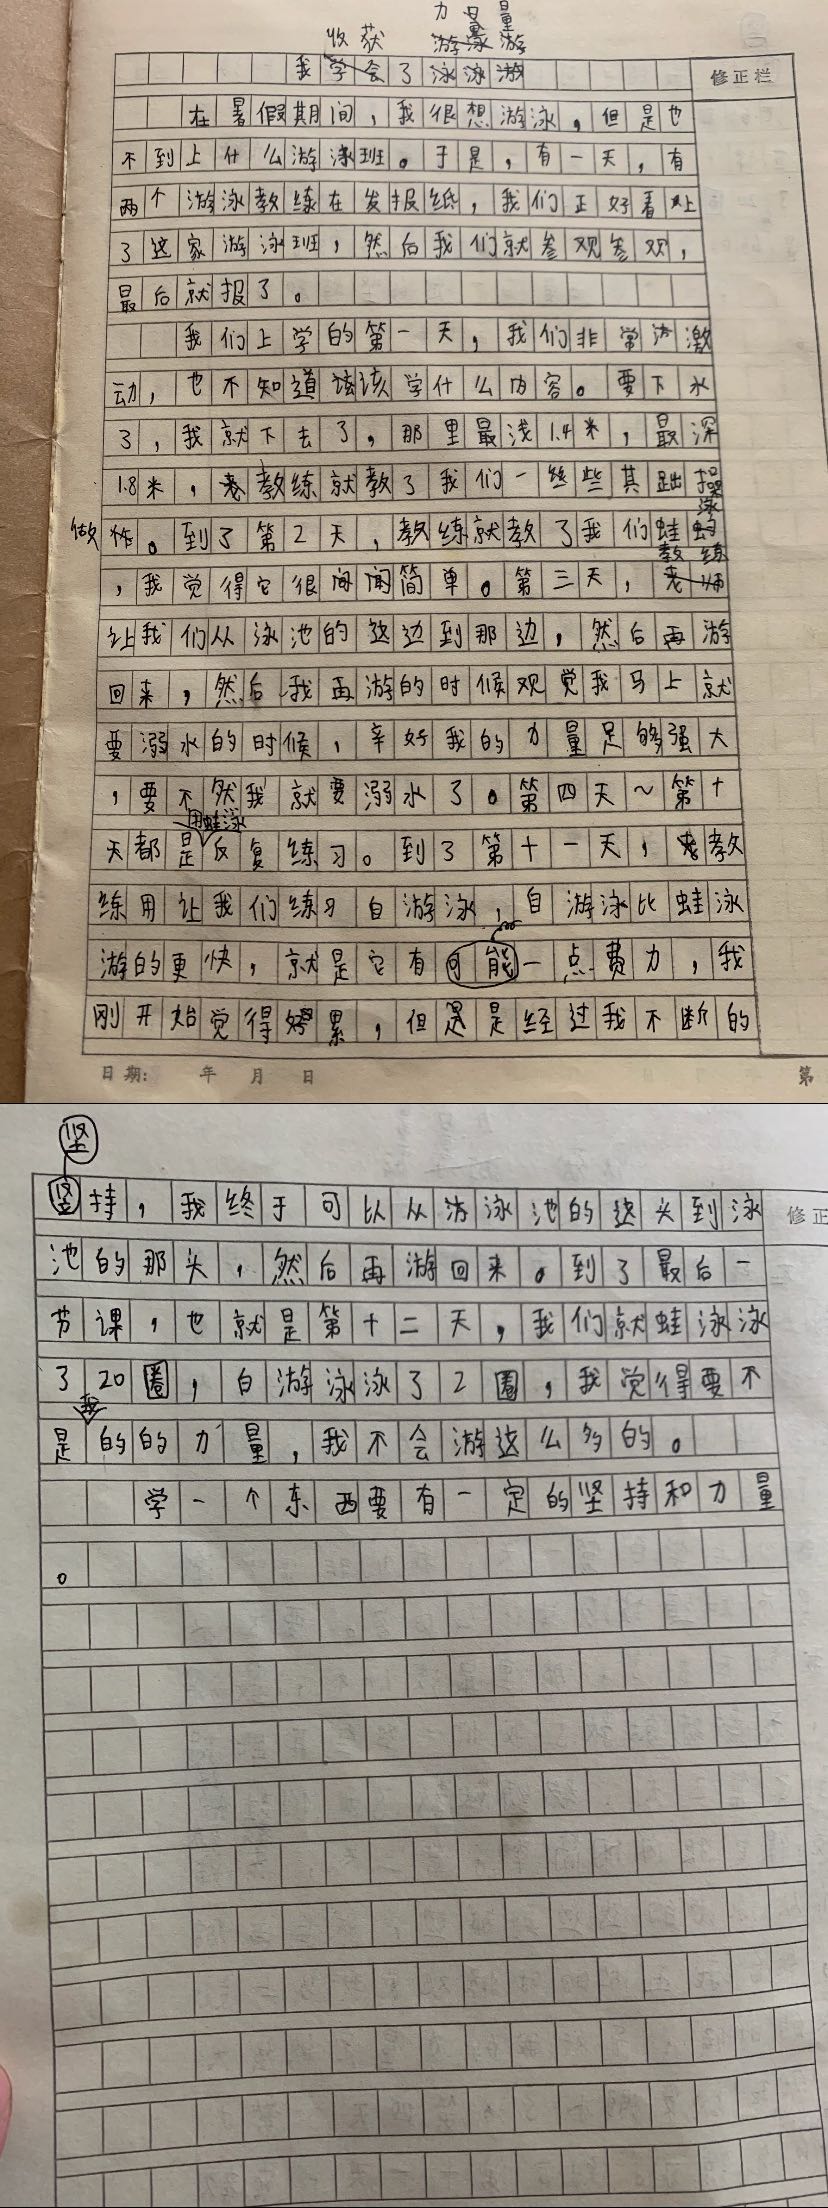 力量
收获 游泳 游
我学会了泳泳游
修正栏
在暑假期间，我很想游泳，但是也
不到上什么游泳班。于是，有一天，有
两个游泳教练在发报纸，我们正好看上
了这家游泳班，然后我们就参观参观，
最后就报了。
我们上学的第一天，我们非常激
动，也不知道该学什么内容。要下水
了，我就下去了，那里最浅1.4米，最深
1.8米，教练就教了我们一些其础操
泳
做作。到了第2天，教练就教了我们蛙
教练
，我觉得它很简单。第三天，老师
让我们从泳池的这边到那边，然后再游
回来，然后我再游的时候观觉我马上就
要溺水的时候，辛好我的力量足够强大
，要不然我就要溺水了。第四天～第十
用蛙泳
天都是反复练习。到了第十一天，教
练用让我们练习自游泳，自游泳比蛙泳
游的更快，就是它有可能一点费力，我
刚开始觉得累，但是是经过我不断的
日期： 年 月 日 第
坚
坚持，我终于可以从游泳池的这头到泳
修正
池的那头，然后再游回来。到了最后一
节课，也就是第十二天，我们就蛙泳泳
了20圈，自游泳泳了2圈，我觉得要不
我
是的的力量，我不会游这么多的。
学一个东西要有一定的坚持和力量
。